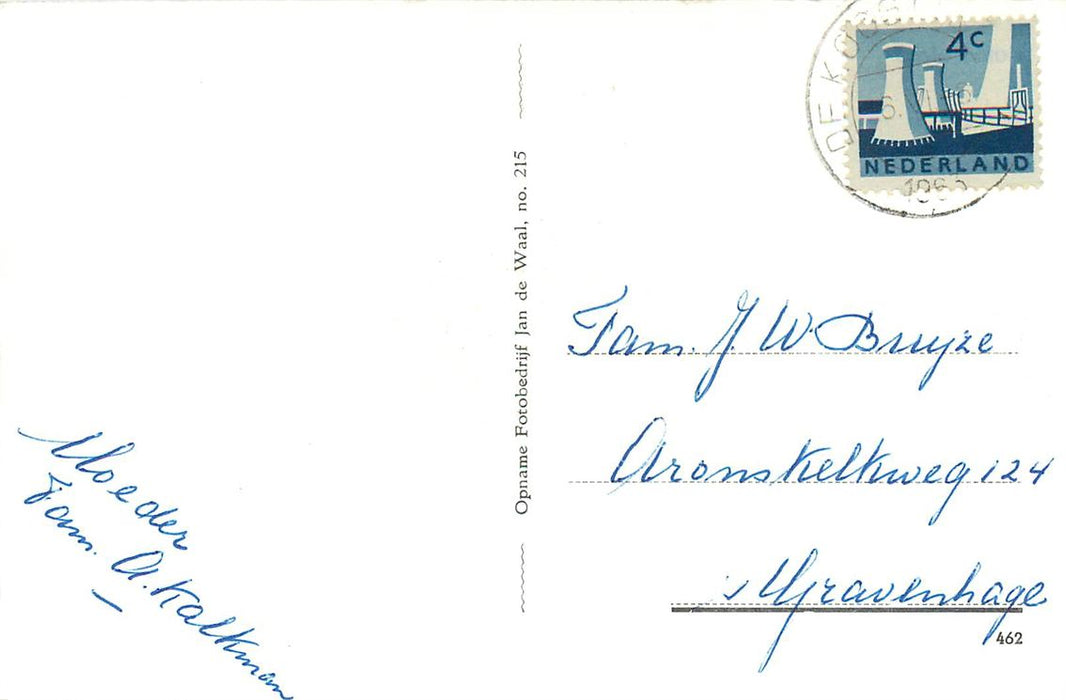 Moeder
Fam. A. Kalkman
Opname Fotobedrijf Jan de Waal, no. 215
DE KOOG
4c
NEDERLAND
Fam. J. W. Bruyze
Aronskelkweg 124
's Gravenhage
462